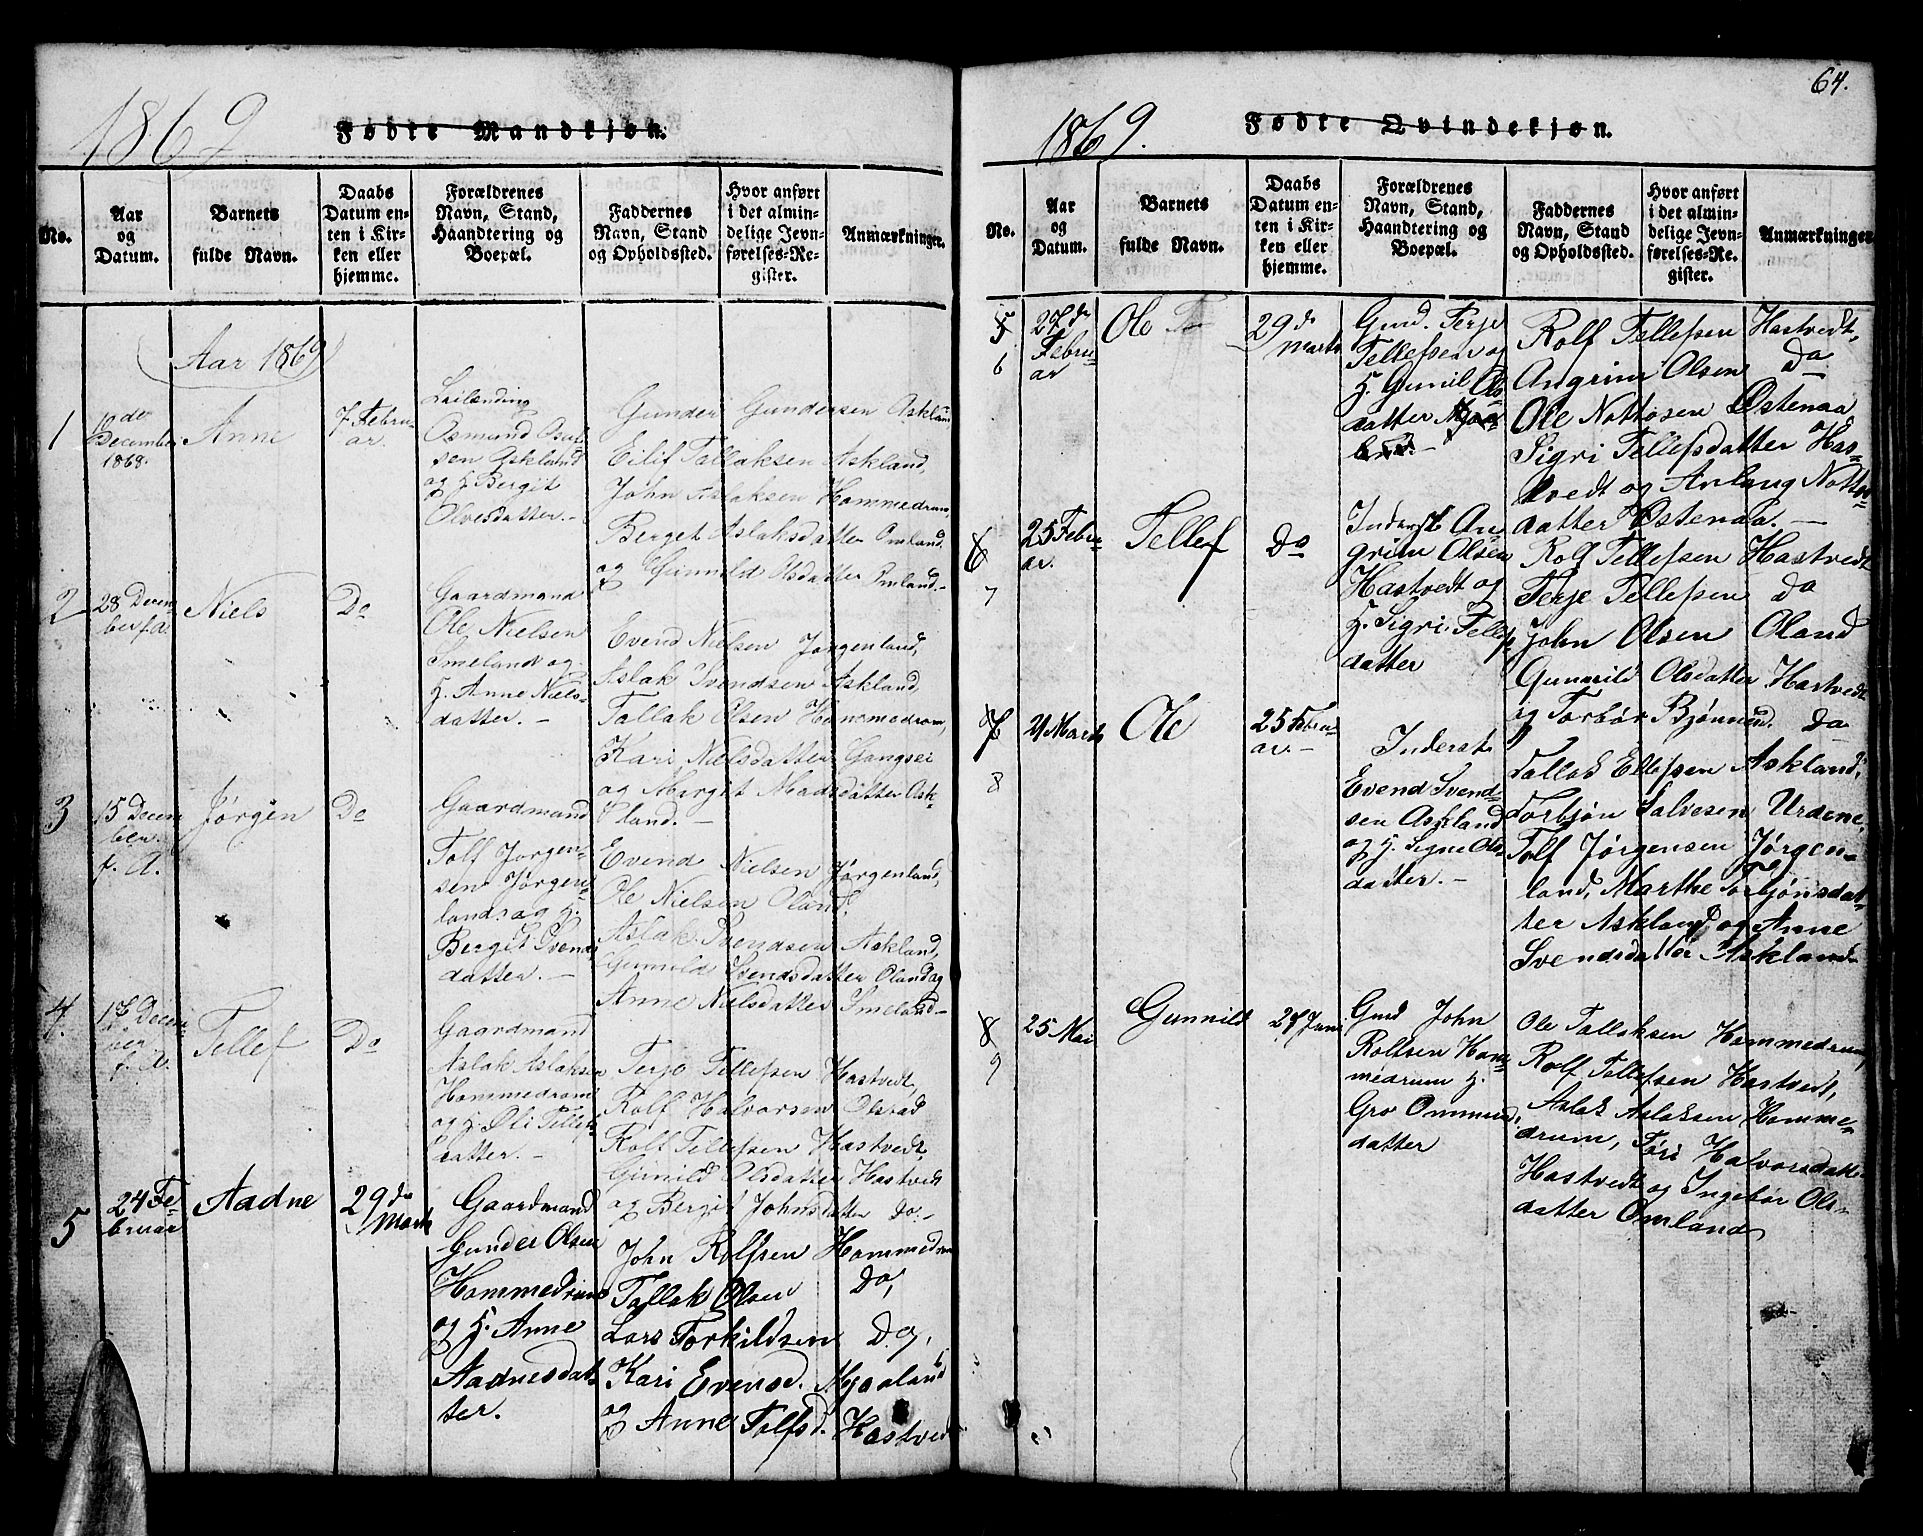 1869
Fødte Mandkjøn.
No.
Aar
og
Datum.
Barnets
fulde Navn.
Daabs
Datum en-
ten i Kir-
ken eller
hjemme.
Forældrenes
Navn, Stand,
Haandtering og
Boepæl.
Faddernes
Navn, Stand
og Opholdssted.
Hvor anført
i det almin-
delige Jevn-
førelses-Re-
gister.
Anmærkninger.
Aar 1869
1
December
1868.
Anne
7 Febru
ar.
Leilænding
Osmund
sen Askland
og H. Bergit
Olvesdatter. -
Gunder Gundersen Askland
Eilif Tallaksen Askland,
John Aslaksen Hommedrum,
Berget Aslaksdatter Omland,
og Gunnild Olsdatter Omland. -
2
28 Decem-
ber f. A.
Niels
Do
Gaardmand
Ole Nielsen
Smeland og
H. Anne Niels-
datter. -
Evend Nielsen Jørgenland,
Aslak Svendsen Askland,
Tallak Olsen Hommedrom,
Kari Nielsdatter Gangsei
og Margit Madsdatter Ask-
land. -
3
15 Decem
ber
f. A.
Jørgen
Do
Gaardmand
Tolf Jørgen-
sen Jørgen-
land og H.
Bergit Svends
datter. -
Evend Nielsen Jørgenland,
Ole Nielsen Oland,
Aslak Svendsen Askland,
Gunnild Svendsdatter Oland og
Anne Nielsdatter Smeland -
4.
Decem-
ber
f. A.
Tellef
Do
Gaardmand
Aslak Aslaksen
Hommedrom
og H. Oli Tellef
datter. -
Terje Tellefsen Hastvedt,
Rolf Halvorsen Olstad
Rolf Tellefsen Hastvedt,
Gunild Olsdatter Hastvedt
og Bergit Johnsdatter do. -
5
24 Fe-
bruar
Aadne
29de
Marts
Gaardmand
Gunder Olsen
Hommedrum
og H. Anne
Aadnesdat-
ter.
John Rolfsen Hommedrum
Tallak Olsen Do,
Lars Torkildsen Do,
Kari Evensd. Myaaland
og Anne Tolfsd. Hastvedt
64.
1869.
Fødte Qvindekjøn.
No.
Aar
og
Datum.
Barnets
fulde Navn.
Daabs
Datum en-
ten i Kir-
ken eller
hjemme.
Forældrenes
Navn, Stand,
Haandtering og
Boepæl.
Faddernes
Navn, Stand
og Opholdssted.
Hvor anført
i det almin-
delige Jevn-
førelses-Re-
gister.
Anmærkninger
5
6
27de
Febru
ar
Ole
29de
Marts
Gmd. Terje
Tellefsen og
H. Gunil Ols
datter
Rolf Tellefsen Hastvedt,
Angrim Olsen do
Ole Nottosen Østenaa
Sigri Tellefsdatter Has-
tvedt og Anlaug Notto
datter Østenaa. -
6
7
25 Febru
ar.
Tellef
Do
Inderst An-
grim Olsen
Hastvedt og
H. Sigri Tellef
datter
Rolf Tellefsen Hastvedt
Terje Tellefsen do
John Olsen Oland
Gunnild Olsdatter Hastvedt
og Torbør Bjønnsd. do
7
8
21 Marts
Ole
25 Febru-
ar. -
Inderst
Evend Svend-
sen Askland
og H. Signe Ols
datter. -
Tallak Ellefsen Askland,
Torbjøn Salvesen Urdene,
Tolf Jørgensen Jørgen-
land, Marthe Torbjønsdat-
ter Askland og Anne
Svendsdatter Askland
8
9
25 Mai
Gunnild
27 Juni
Gmd John
Rolfsen Hom
medrum H.
Gro Ommund
datter
Ole Tallaksen Hommedrum,
Rolf Tellefsen Hastvedt,
Aslak Aslaksen Homme-
drum, Tøri Halvorsdatter
Hastvedt og Ingebør Ols-
datter Omland